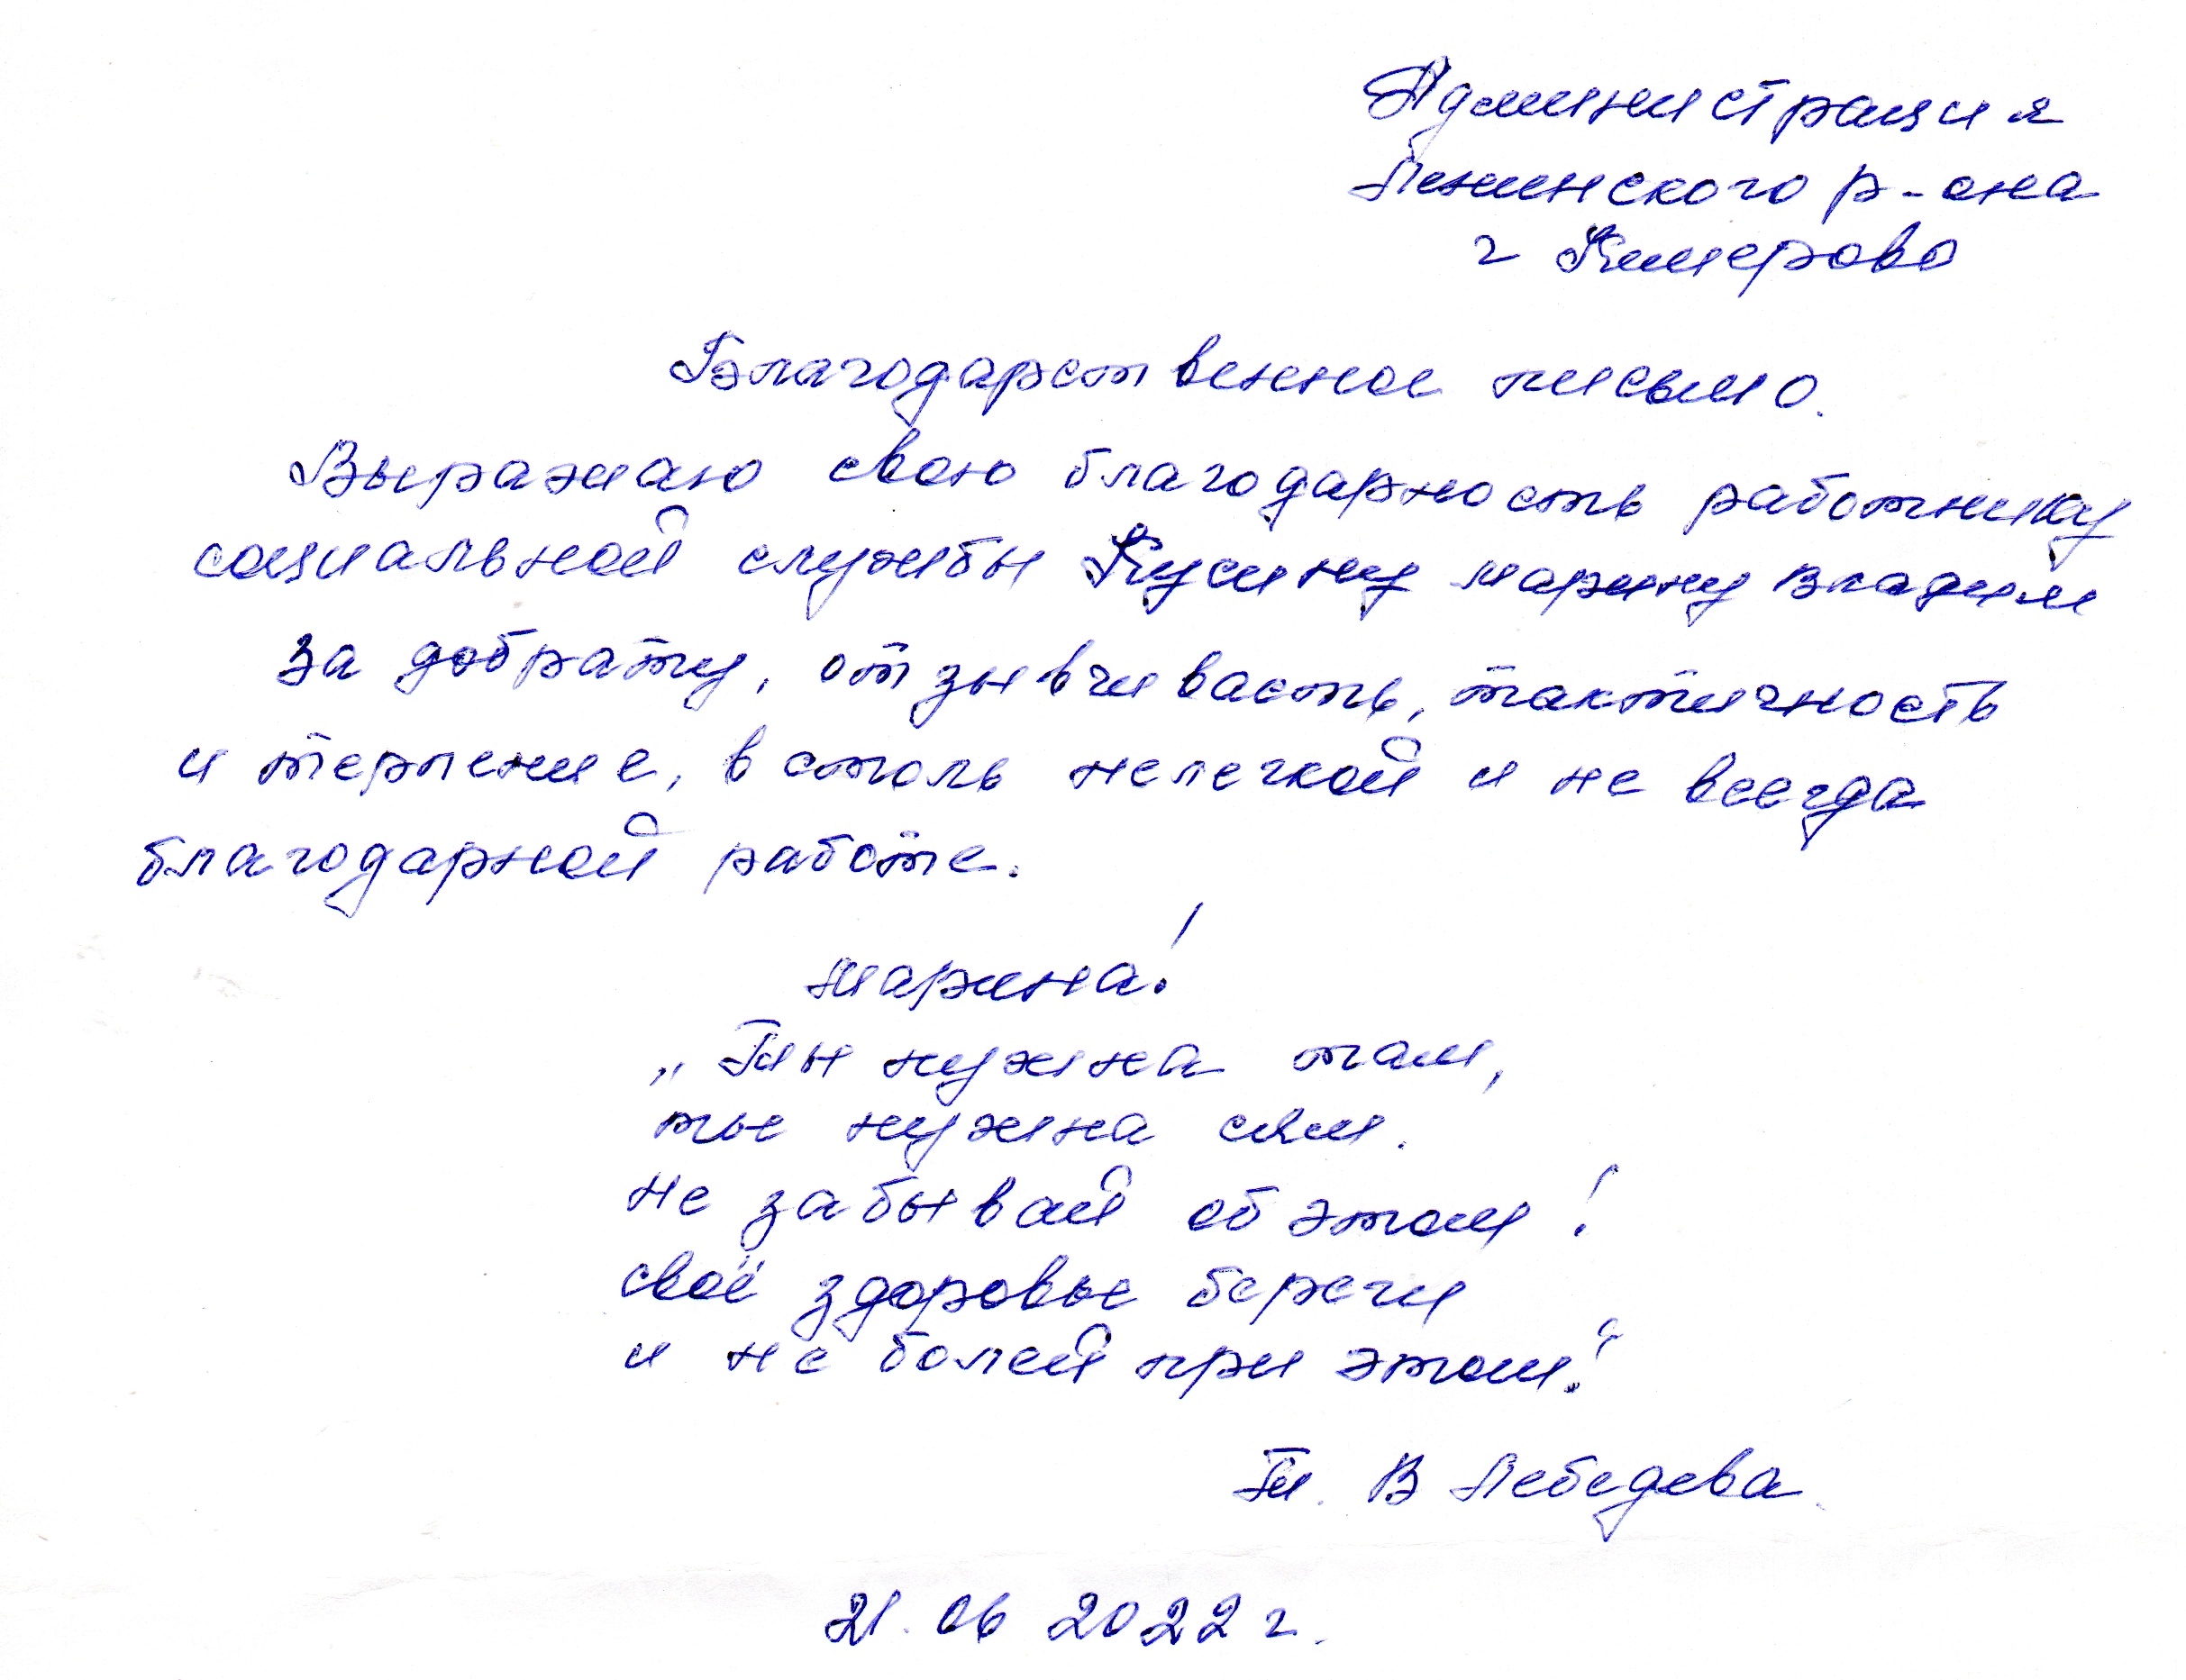 Администрация
Ленинского р-она
г Кемерово
Благодарственное письмо.
Выражаю свою благодарность работнику
социальной службы марину Владим
за добрату, отзывчивасть, тактичность
и терпение, в столь нелегкой и не всегда
благодарной работе.
марина!
„Ты нужна там,
ты нужна сям.
не забывай об этом!
своё здоровье береги
и не болей при этом!"
Т. В Лебедева.
21.06 2022 г.